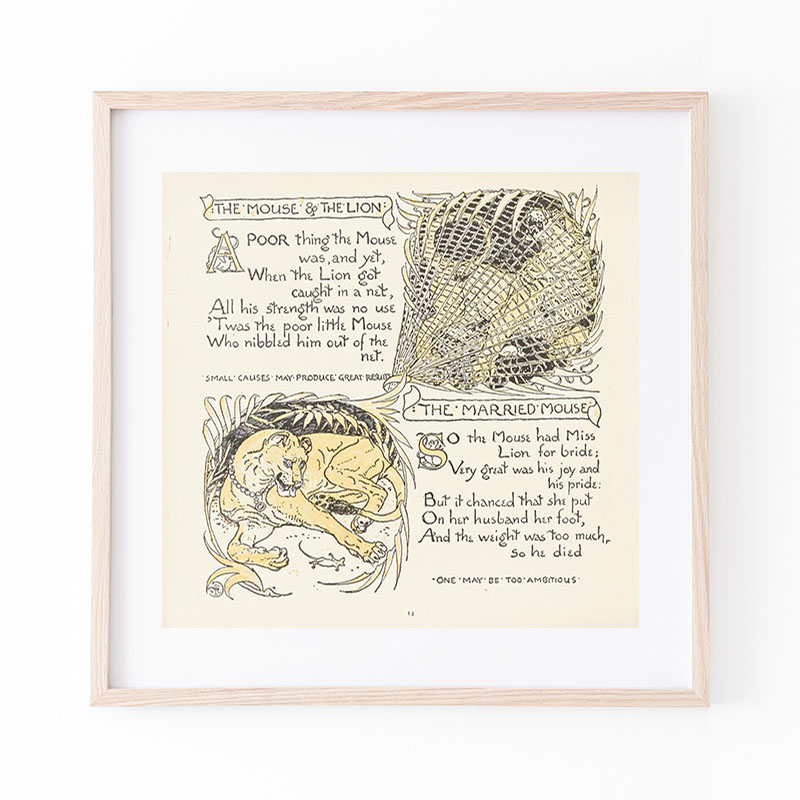 THE MOUSE & THE LION
A POOR thing the Mouse
was, and yet,
When the Lion got
caught in a net,
All his strength was no use
'Twas the poor little Mouse
Who nibbled him out of the
net.
SMALL CAUSES MAY PRODUCE GREAT RESULTS
THE MARRIED MOUSE
SO the Mouse had Miss
Lion for bride;
Very great was his joy and
his pride:
But it chanced that she put
On her husband her foot,
And the weight was too much,
So he died
ONE MAY BE TOO AMBITIOUS
14